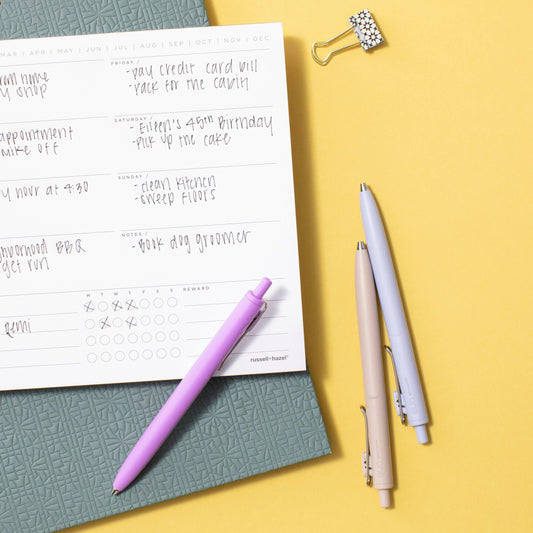 MAR | APR | MAY | JUN | JUL | AUG | SEP | OCT | NOV | DEC
from home
shop
FRIDAY /
- pay credit card bill
- pack for the cabin
appointment
mike off
SATURDAY /
- Eileen's 45th Birthday
- pick up the cake
hour at 4:30
SUNDAY /
- clean kitchen
- sweep floors
BBQ
get run
NOTES /
- Book dog groomer
M T W T F S S REWARD
Remi
russell+hazel®